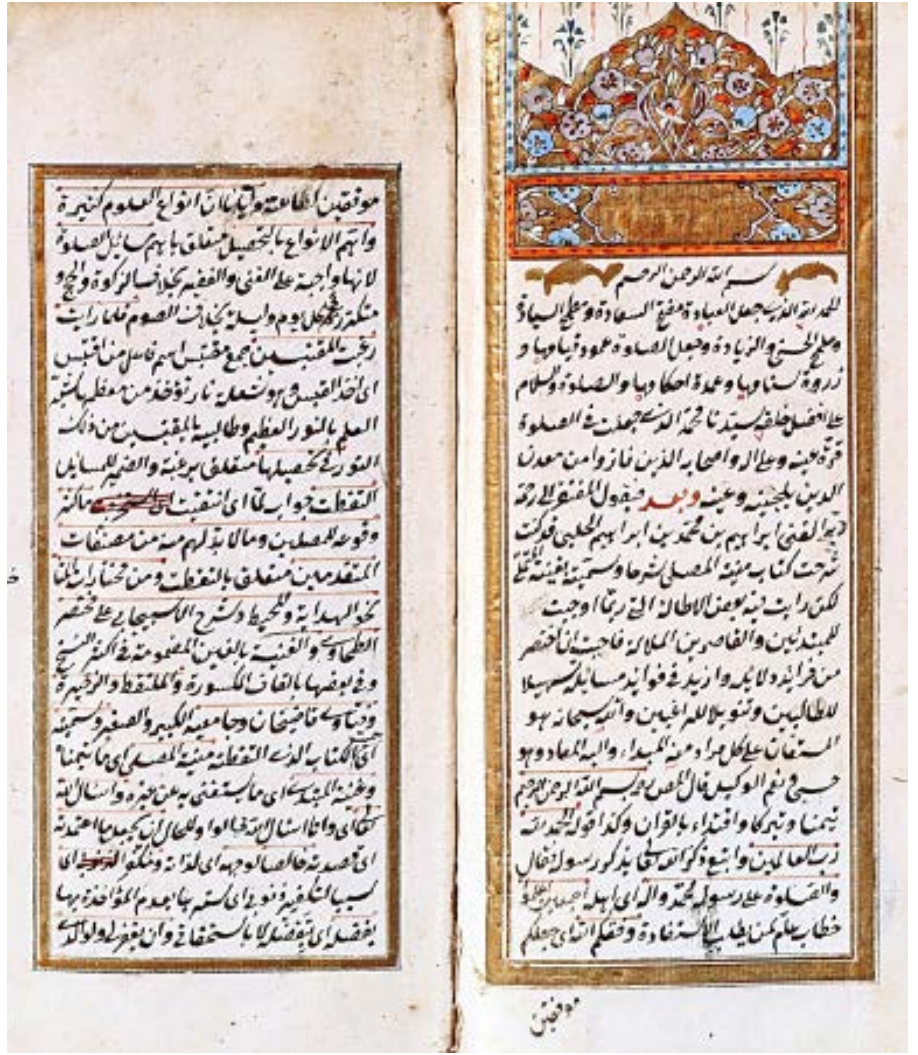 بسم الله الرحمن الرحيم
الحمد لله الذي جعل العبادة مفتاح السعادة ومطمح السيادة
وملمح الحسنى والزيادة وجعل الصلوة عمود قبابها و
ذروة سنامها وعمدة احكامها والصلوة والسلام
على افضل خلقه سيدنا محمد الذي جعلت في الصلوة
قرة عينه وعلى اله واصحابه الذين فازوا من معدن
الدين بلجينه وعينه وبعد فيقول المفتقر الى رحمة
ربه الغنى ابراهيم بن محمد بن ابراهيم الحلبي قد كنت
شرحت كتاب منية المصلى شرحا وسميته بغنية المتملي
لكن رايت فيه بعض الاطالة التي ربما اوجبت
للمبتدئين والقاصرين الملالة فاحببت ان اختصر
من فرائد دلائله وازيد في فوائد مسائله تسهيلا
للطالبين وتنويلا للراغبين والله سبحانه هو
المستعان على كل مراد منه المبداء واليه المعاد وهو
حسبى ونعم الوكيل قال المص بسم الله الرحمن الرحيم
تيمنا وتبركا واقتداء بالقران وكذا قوله الحمد لله
رب العالمين واتبع ذكر الله بذكر رسوله فقال
والصلوة على رسوله محمد واله اى اهله اجمعين اعلموا
خطاب عام لمن يطلب الاستفادة وفقكم الله اى جعلكم
موفقين
موفقين لطاعته وايانا ان انواع العلوم كثيرة
واهم الانواع بالتحصيل متعلق باهم مسائل الصلوة
لانها واجبة على الغنى والفقير بخلاف الزكوة والحج و
متكررة كل يوم وليلة بخلاف الصوم فلما رايت
رغبة المقتبسين جمع مقتبس اسم فاعل من اقتبس
اى اخذ القبس وهو شعلة نار تؤخذ من معظمها شبه
العلم بالنور العظيم وطالبيه بالمقتبسين من ذلك
النور في تحصيلها متعلق برغبة والضمير للمسائل
التقطت جواب لما اى انتقيت ما كثر
وقوعه للمصلين وما لا بد لهم منه من مصنفات
المتقدمين متعلق بالتقطت ومن مختارات
نحو الهداية والمحيط وشرح الاسبيجابى على مختصر
الطحاوى والغنية بالغين المضمومة في اكثر النسخ
وفي بعضها بالقاف المكسورة والملتقط والذخيرة
وفتاوى قاضيخان وجامعيه الكبير والصغير وسميته
اى الكتاب الذي التقطته منية المصلى اى ما يتمناه
وغنية المبتدى اى ما يستغنى به عن غيره واسال الله
تعالى اى وانا اسال الله فالواو للحال ان يجعل ما اعتمدته
اى قصدته خالصا لوجهه اى لذاته ومكفرا اى
سببا لتكفير ذنوبى اى ستر بها بعدم المؤاخذة بها
بفضله اى بتفضله لا باستحقاقى وان يغفر لى ولوالدى